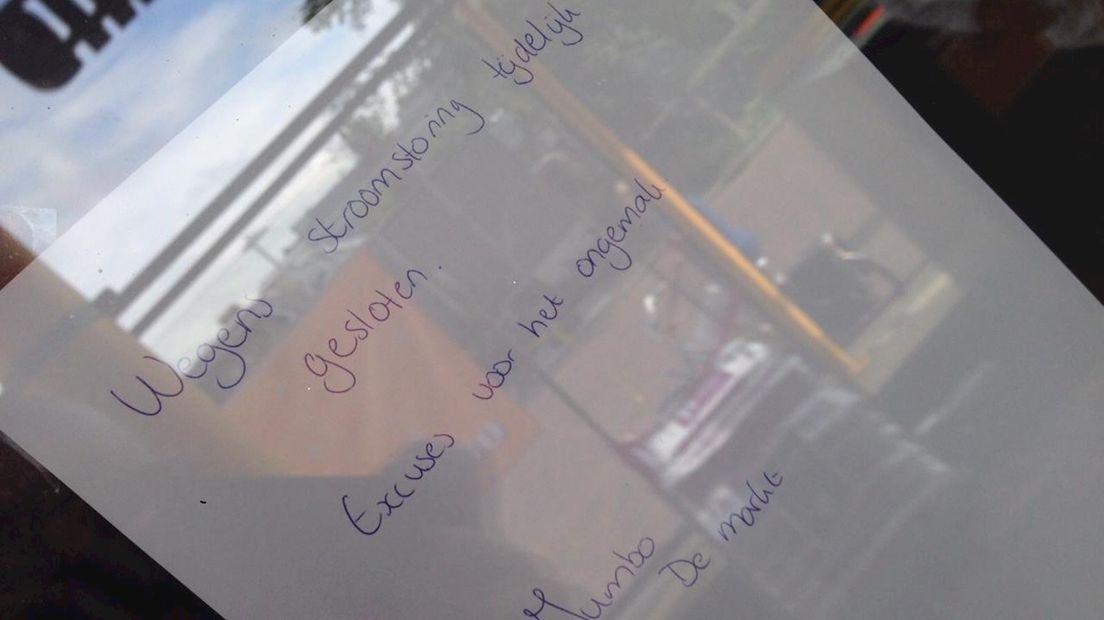 Wegens stroomstoring tijdelijk
gesloten.
Excuses voor het ongemak
Jumbo
De markt